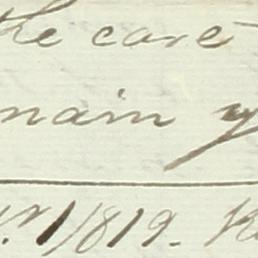 the care
main y
1819.